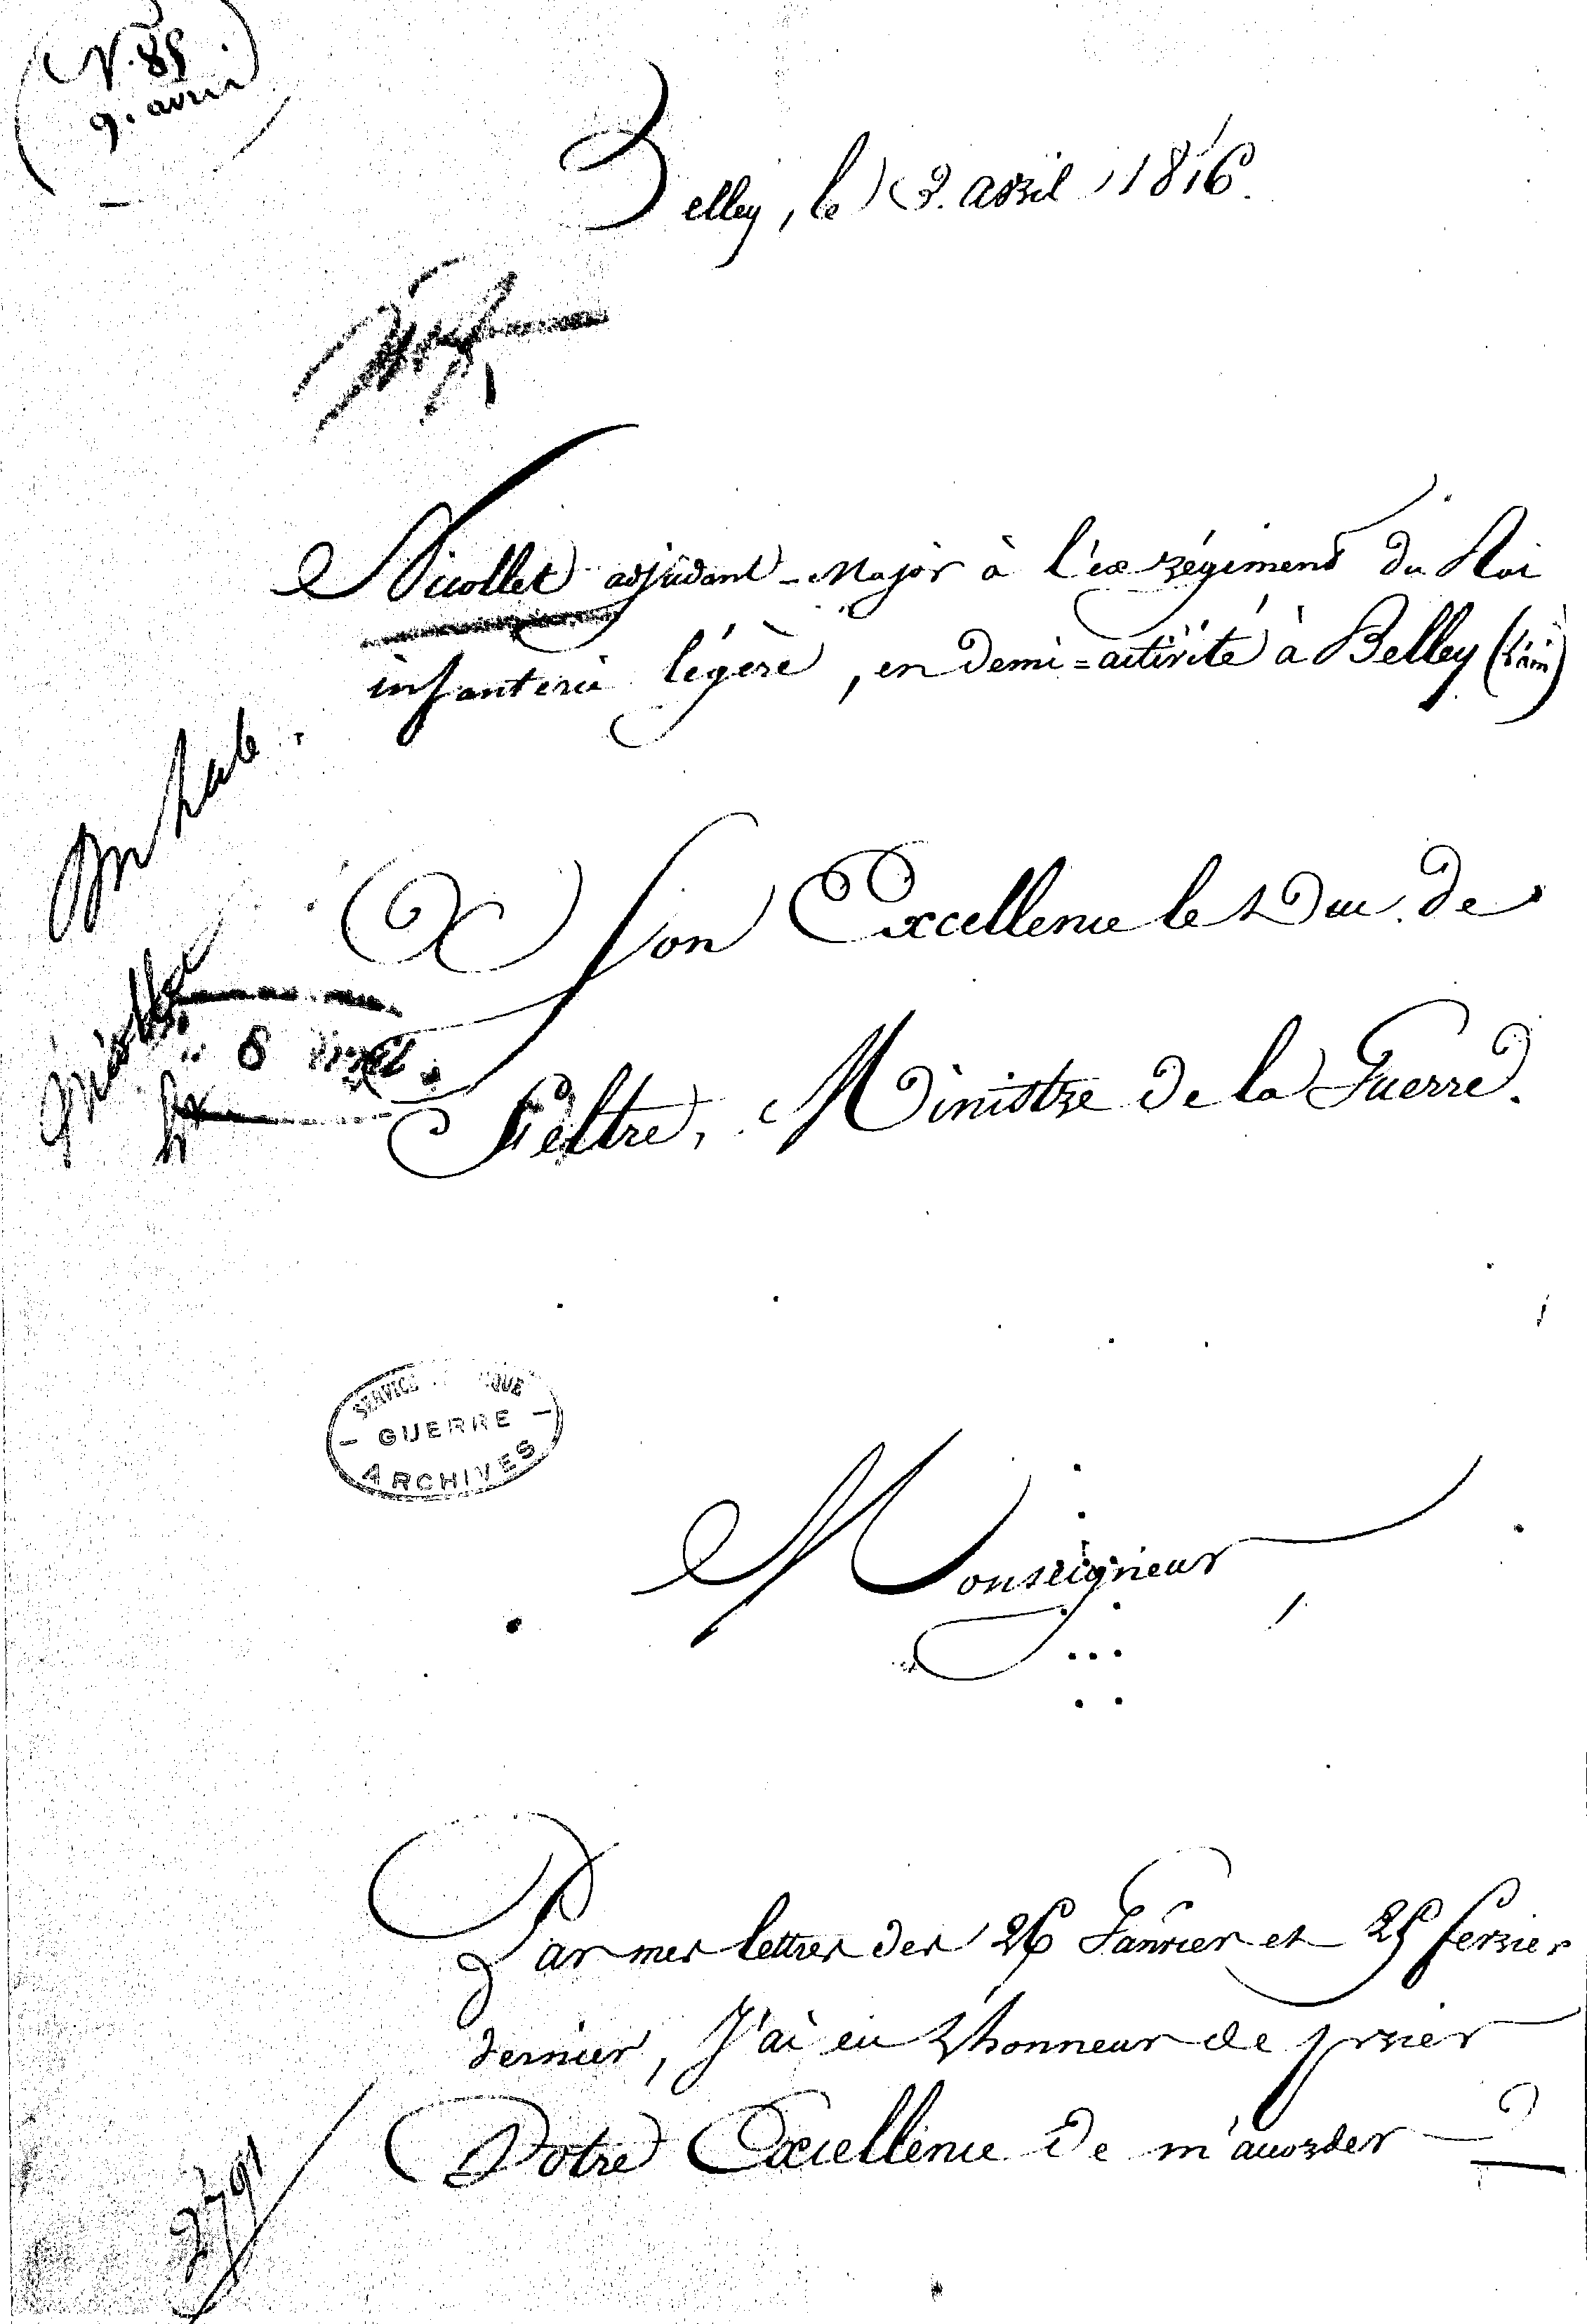 N. 85
9. avril
Belley, le 2. avril 1816.
Nicollet adjudant-Major à l'ex régiment du Roi
infanterie légère, en demi=activité à Belley (l'ain)
A Son Excellence le Duc de
Feltre, Ministre de la Guerre.
SERVICE
GUERRE
ARCHIVES
Monseigneur
Par mes lettres des 26 Janvier et 25 fevrier
dernier, J'ai eu l'honneur de prier
Votre Excellence de m'accorder